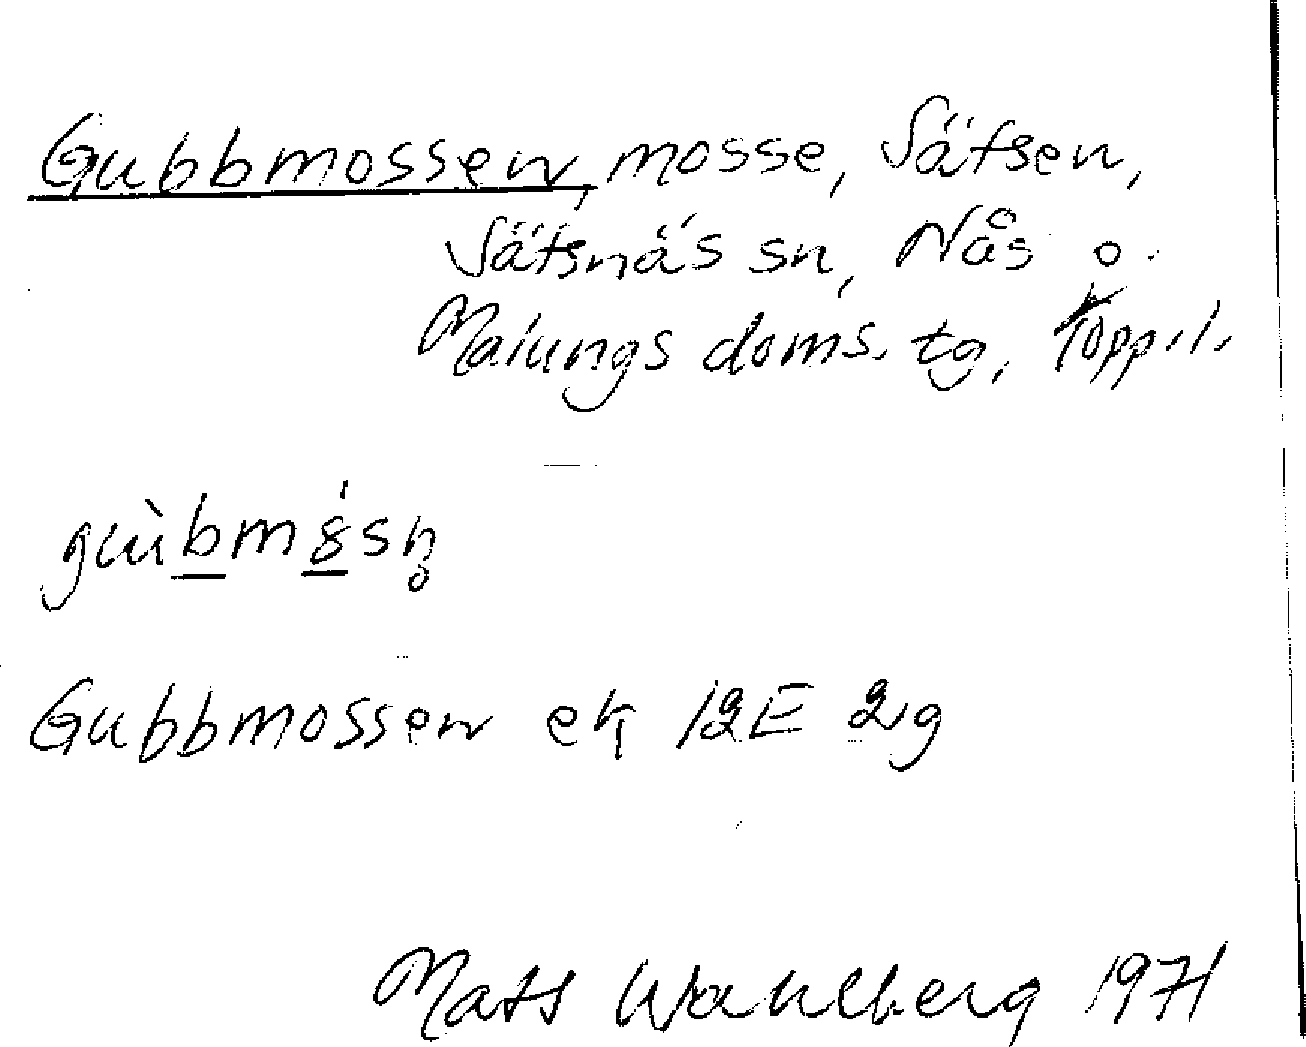 Gubbmossen, mosse, Sätsen,
Sätsnäs sn, Nås o.
Malungs doms. tg, Kopp. l.
Gubbmossen ek 12E 2g
Mats Wahlberg 1971